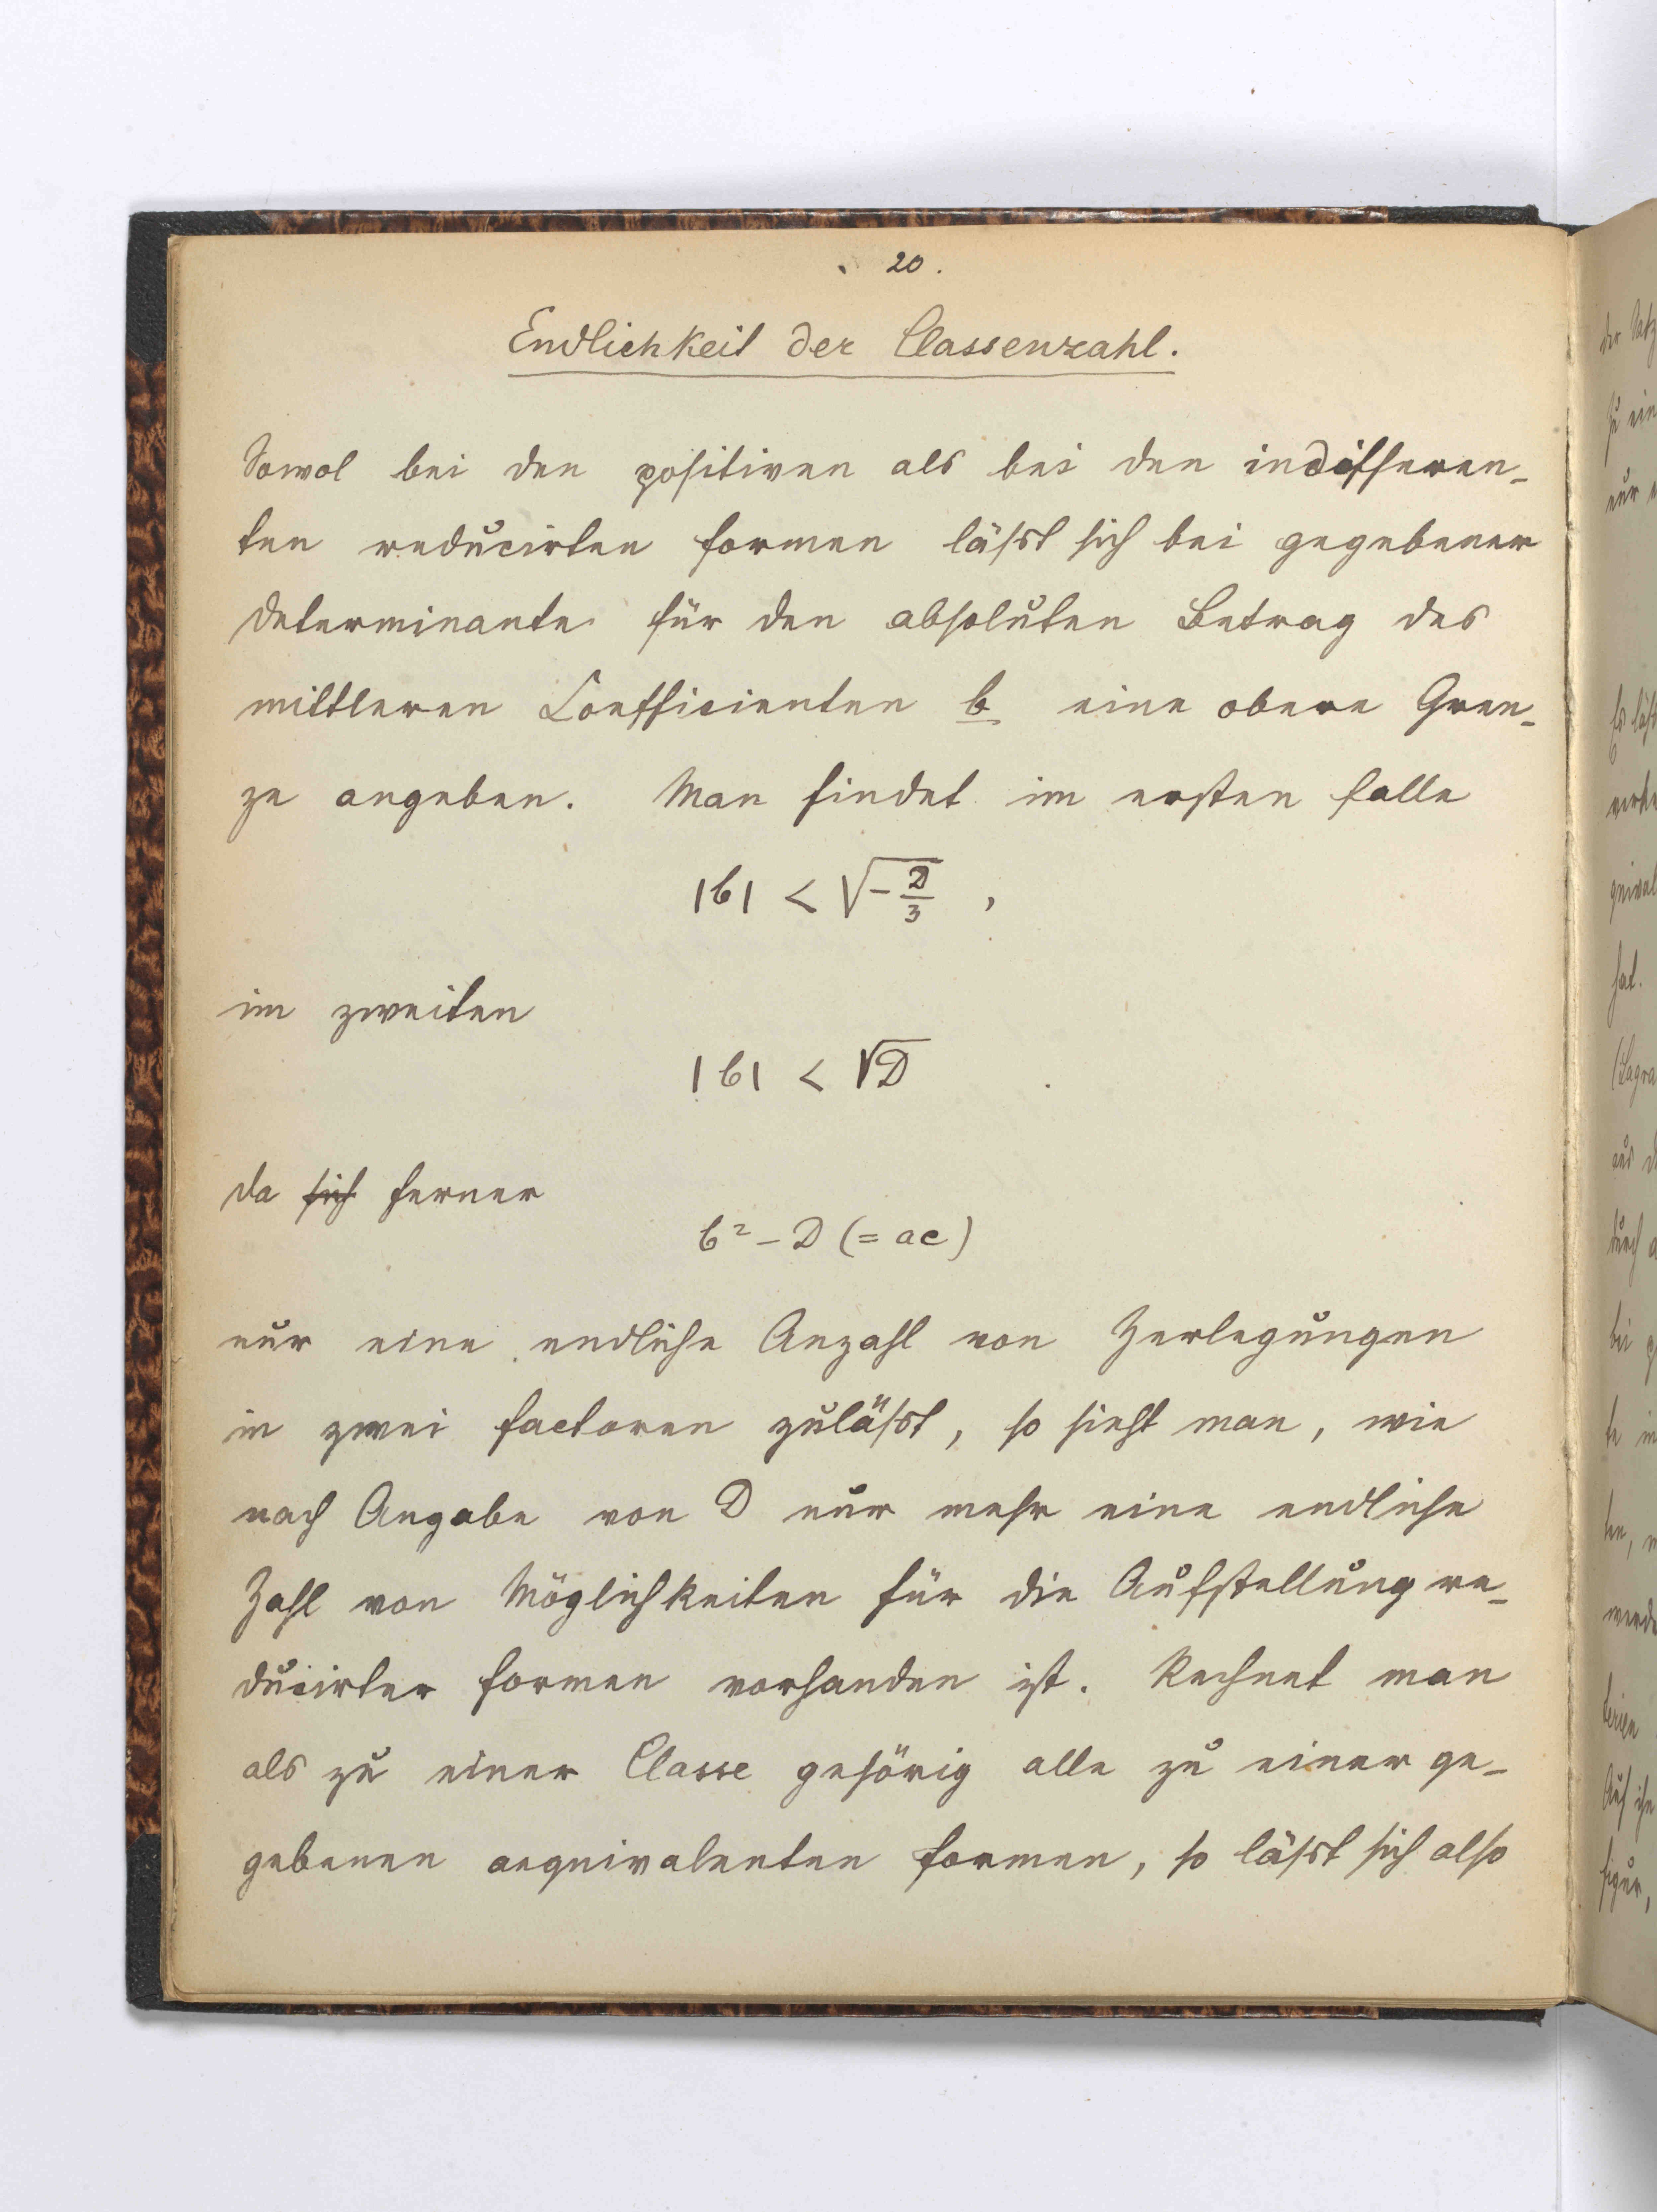 20.
Endlichkeit der Classenzahl.
Sowol bei den positiven als bei den indifferen-
ten reducirten Formen lässt sich bei gegebener
Determinante für den absoluten Betrag des
mittleren Coefficienten b eine obere Gren-
ze angeben. Man findet im ersten Falle
|b| < √-D/3 ,
im zweiten
|b| < √D
da sich ferner
b² - D (= ac)
nur eine endliche Anzahl von Zerlegungen
in zwei Factoren zulässt, so sieht man, wie
nach Angabe von D nur mehr eine endliche
Zahl von Möglichkeiten für die Aufstellung re-
ducirter Formen vorhanden ist. Rechnet man
als zu einer Classe gehörig alle zu einer ge-
gebenen aequivalenten Formen, so lässt sich also